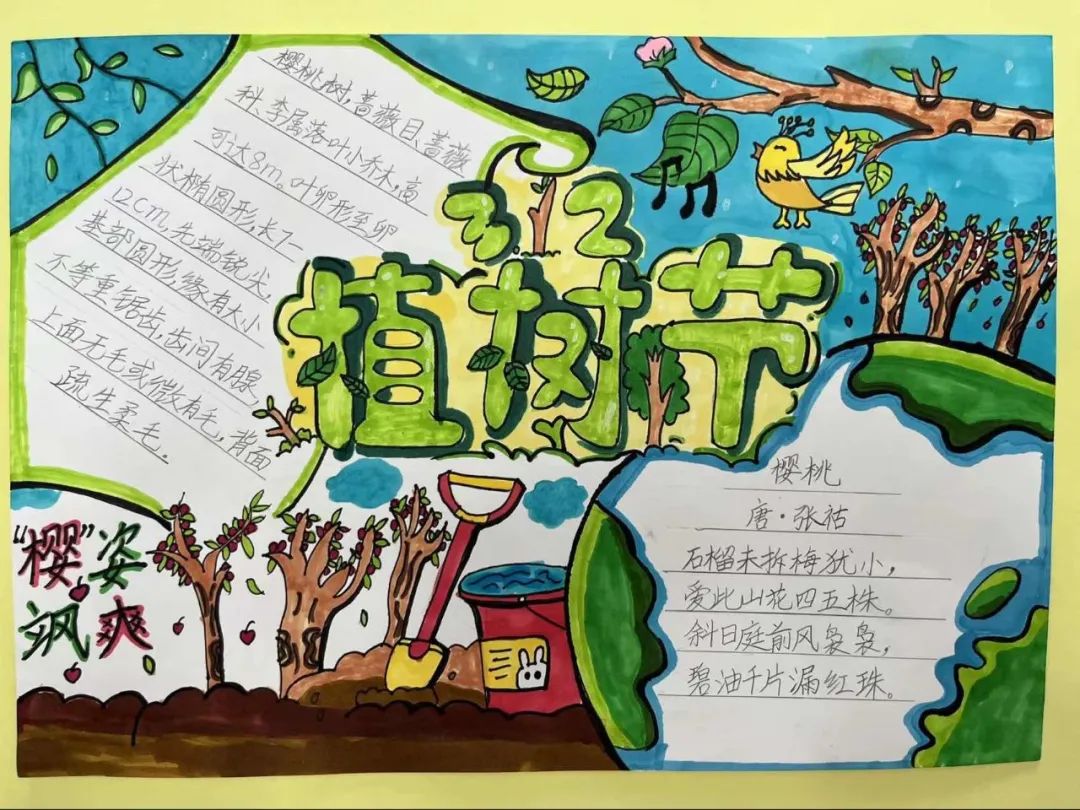 樱桃树,蔷薇目蔷薇
科、李属落叶小乔木,高
可达8m。叶卵形至卵
状椭圆形,长7-
12cm,先端锐尖
基部圆形,缘有大小
不等重锯齿,齿间有腺,
上面无毛或微有毛,背面
疏生柔毛.
3.12
植树节
“樱”姿
飒爽
樱桃
唐·张祜
石榴未拆梅犹小,
爱此山花四五株。
斜日庭前风袅袅,
碧油千片漏红珠。